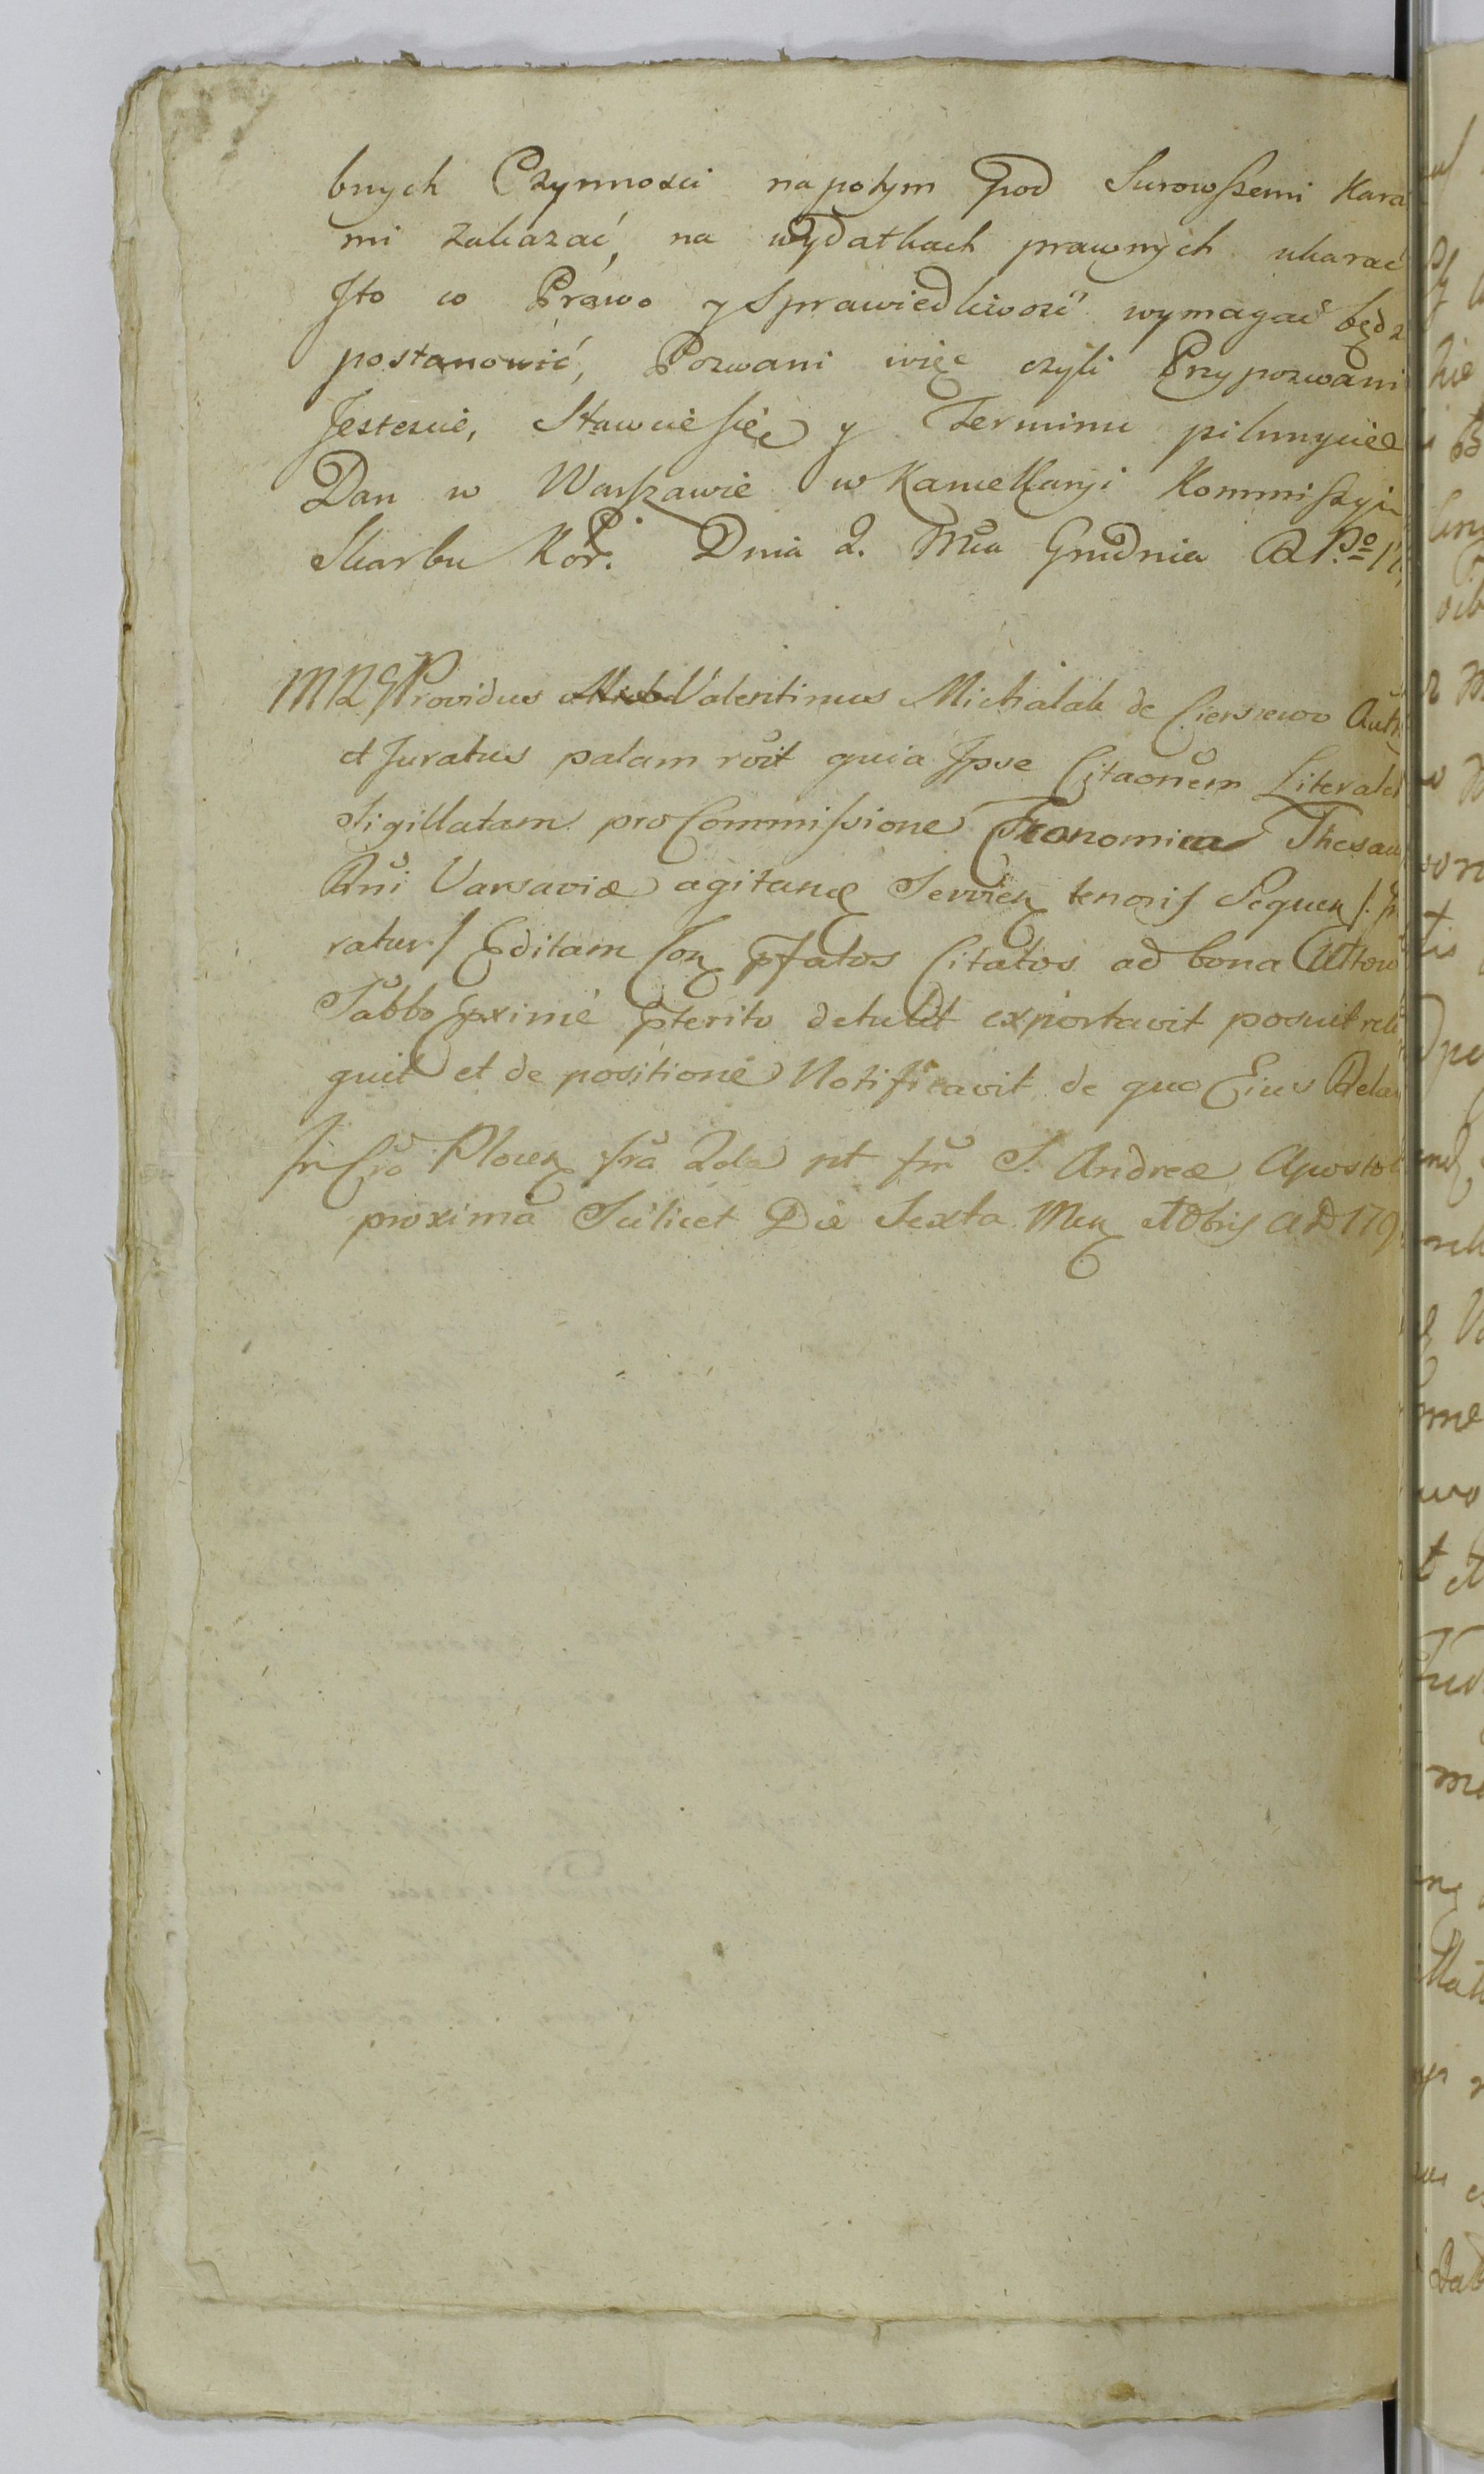 bnych Czynnosci napotym pod Surowszemi Kara
mi zakazać, na wydatkach prawnych ukarać
Jto co Prawo y Sprawiedliwość wymagać będz
postanowić, Pozwani więc czyli Przypozwani
Jestescie, Stawcie się y Terminu pilnuycie
Dan w Warszawie w Kancellaryi Kommissyi
Skarbu Kor. Dnia 2. Mca Grudnia RPo 17
MRG Providus Valentinus Michalak de Cierszewo Auth
et Juratus palam rcvit quia Ipse Citaonem Literalem
Sigillatam pro Commissione Œconomica Thesau
Rni Varsaviæ agitanę Servien tenoris Sequen /: in
ratur :/ Editam Con pfatos Citatos ad bona
Sabbo pxime pterito detulit exportavit posuit reli
quit et de positione Notificavit de quo Eius Rela
In Cro Plocen fra 2da pt fm S. Andreæ Apostoli
proxima Scilicet Die Sexta Men Xbris AD 179